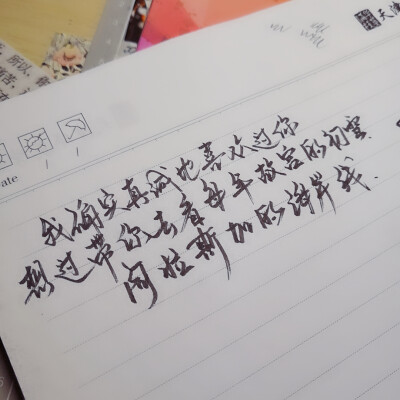 我确实真诚地喜欢过你
想过带你去看每年故宫的初雪
阿拉斯加的海岸线
ate / /
will